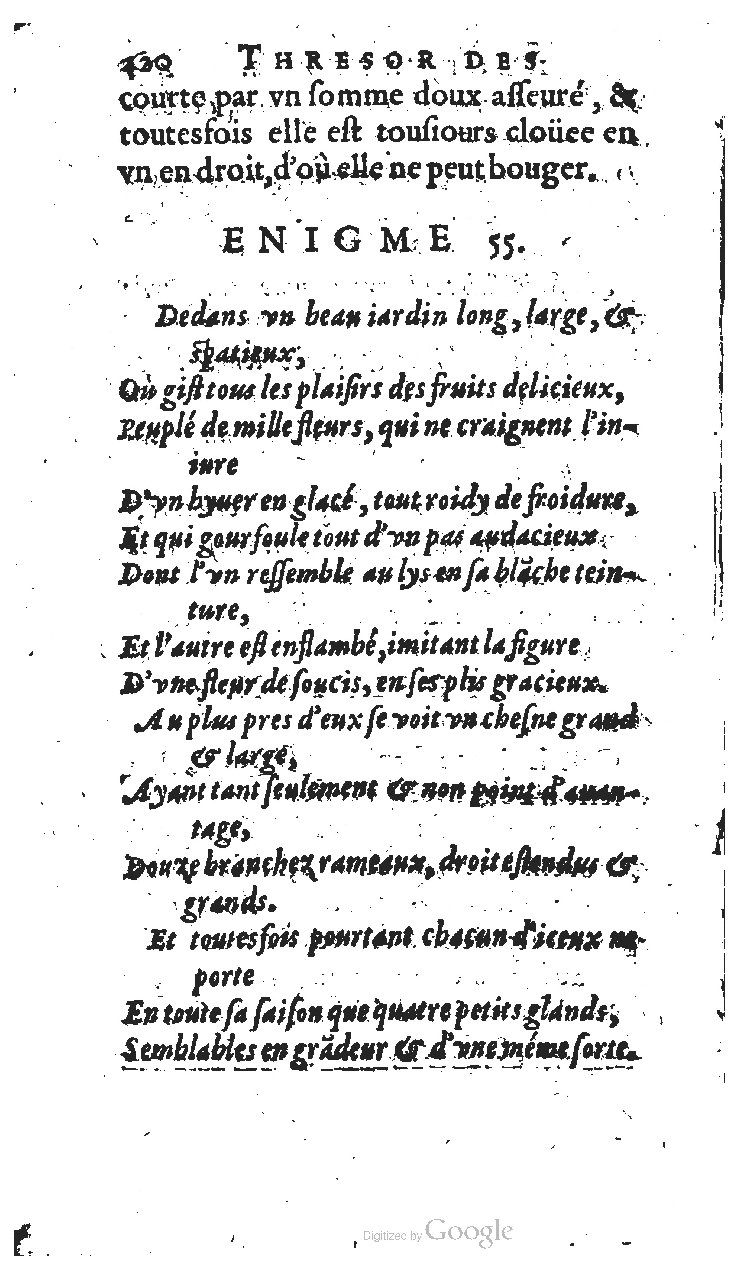 420 THRESOR DES
courte par vn somme doux asseuré, &
toutesfois elle est tousiours cloüee en
vn endroit, d'où elle ne peut bouger.
ENIGME 55.
Dedans vn beau iardin long, large, &
spatieux,
Où gist tous les plaisirs des fruits delicieux,
Peuplé de mille fleurs, qui ne craignent l'in-
iure
D'vn hyuer en glacé, tout roidy de froidure,
Et qui gourfoule tout d'vn pas audacieux
Dont l'vn ressemble au lys en sa blãche tein-
ture,
Et l'autre est enflambé, imitant la figure
D'vne fleur de soucis, en ses plis gracieux.
Au plus pres d'eux se voit vn chesne grand
& large,
Ayant tant seulement & non point d'auan-
tage,
Douze branchez rameaux, droit estendus &
grands.
Et toutesfois pourtant chacun d'iceux ne
porte
En toute sa saison que quatre petits glands,
Semblables en grãdeur & d'vne méme sorte.
Digitized by Google